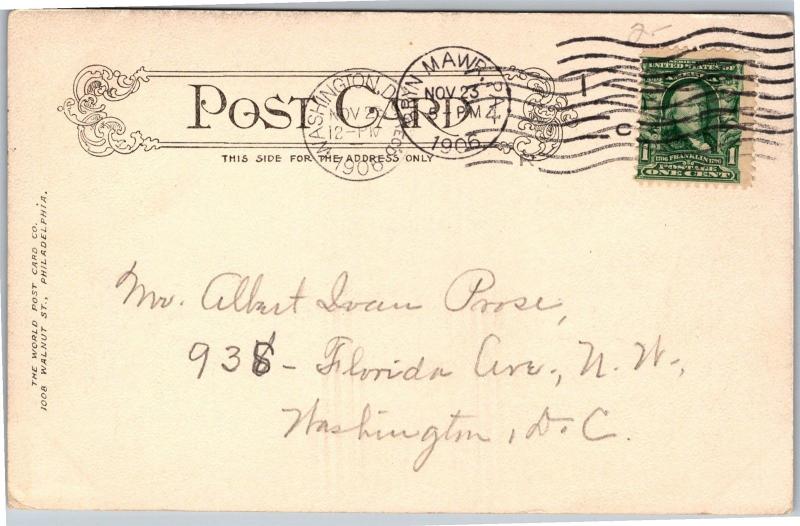 POST CARD
THIS SIDE FOR THE ADDRESS ONLY
WASHINGTON, D.
NOV
12-PM
1906
REC'D
BRYN MAWR, PA.
NOV 23
PM
1906
2-
SERIES
UNITED STATES OF
1 1706 FRANKLIN 1790 1
POSTAGE
ONE CENT
THE WORLD POST CARD CO.
1008 WALNUT ST., PHILADELPHIA.
Mr. Albert Ivan Prose,
938 - Florida Ave., N.W.,
Washington, D.C.